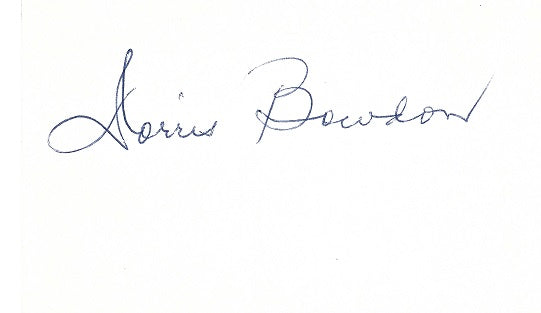 Dorris Bowdon